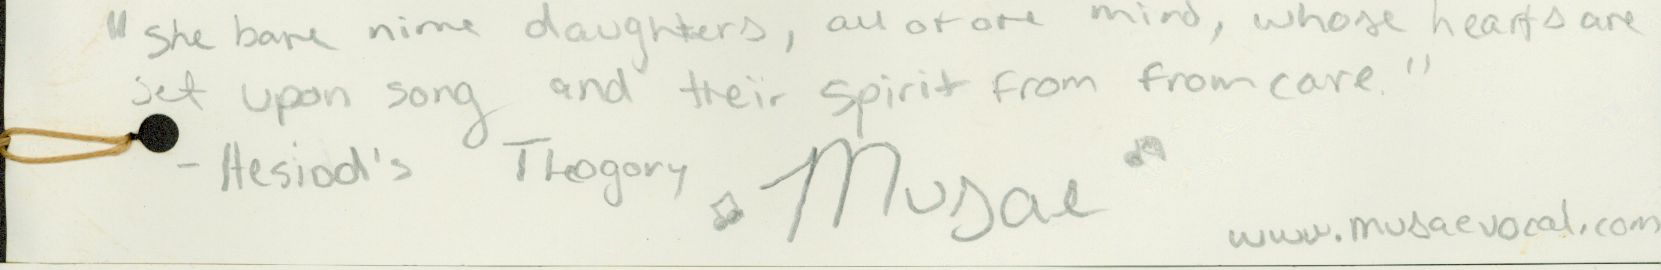 "She bare nine daughters, all of one mind, whose hearts are
set upon song and their spirit from from care."
- Hesiod's Theogory
Musae
www.musaevocal.com